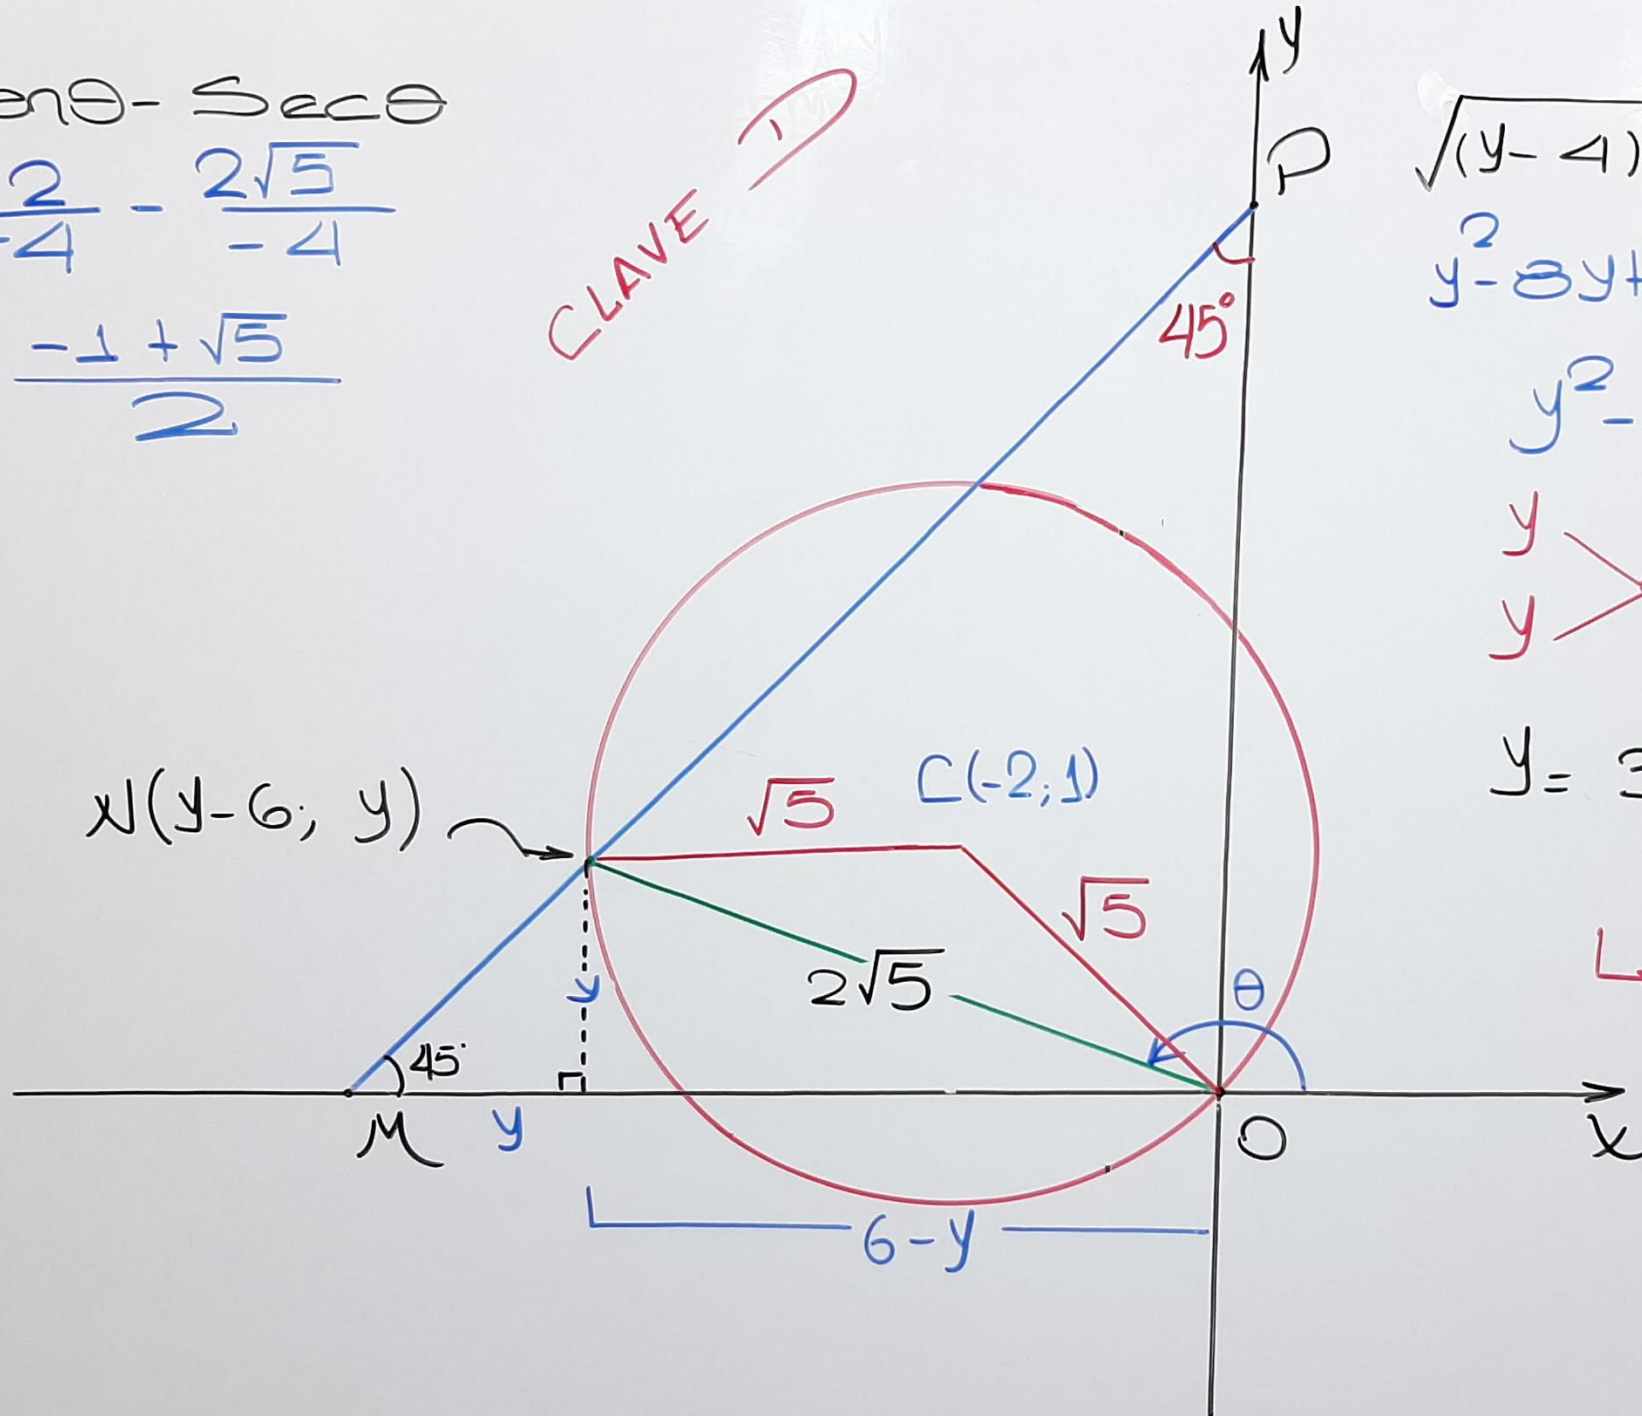 enθ- Secθ
2/-4 - 2√5/-4
-1 + √5
2
CLAVE D
y
P
45°
√(y- 4)
y²-8y+
y² -
y
y
y= 3
N(y-6; y)
√5
C(-2;1)
√5
2√5
θ
45°
M
y
O
x
6-y